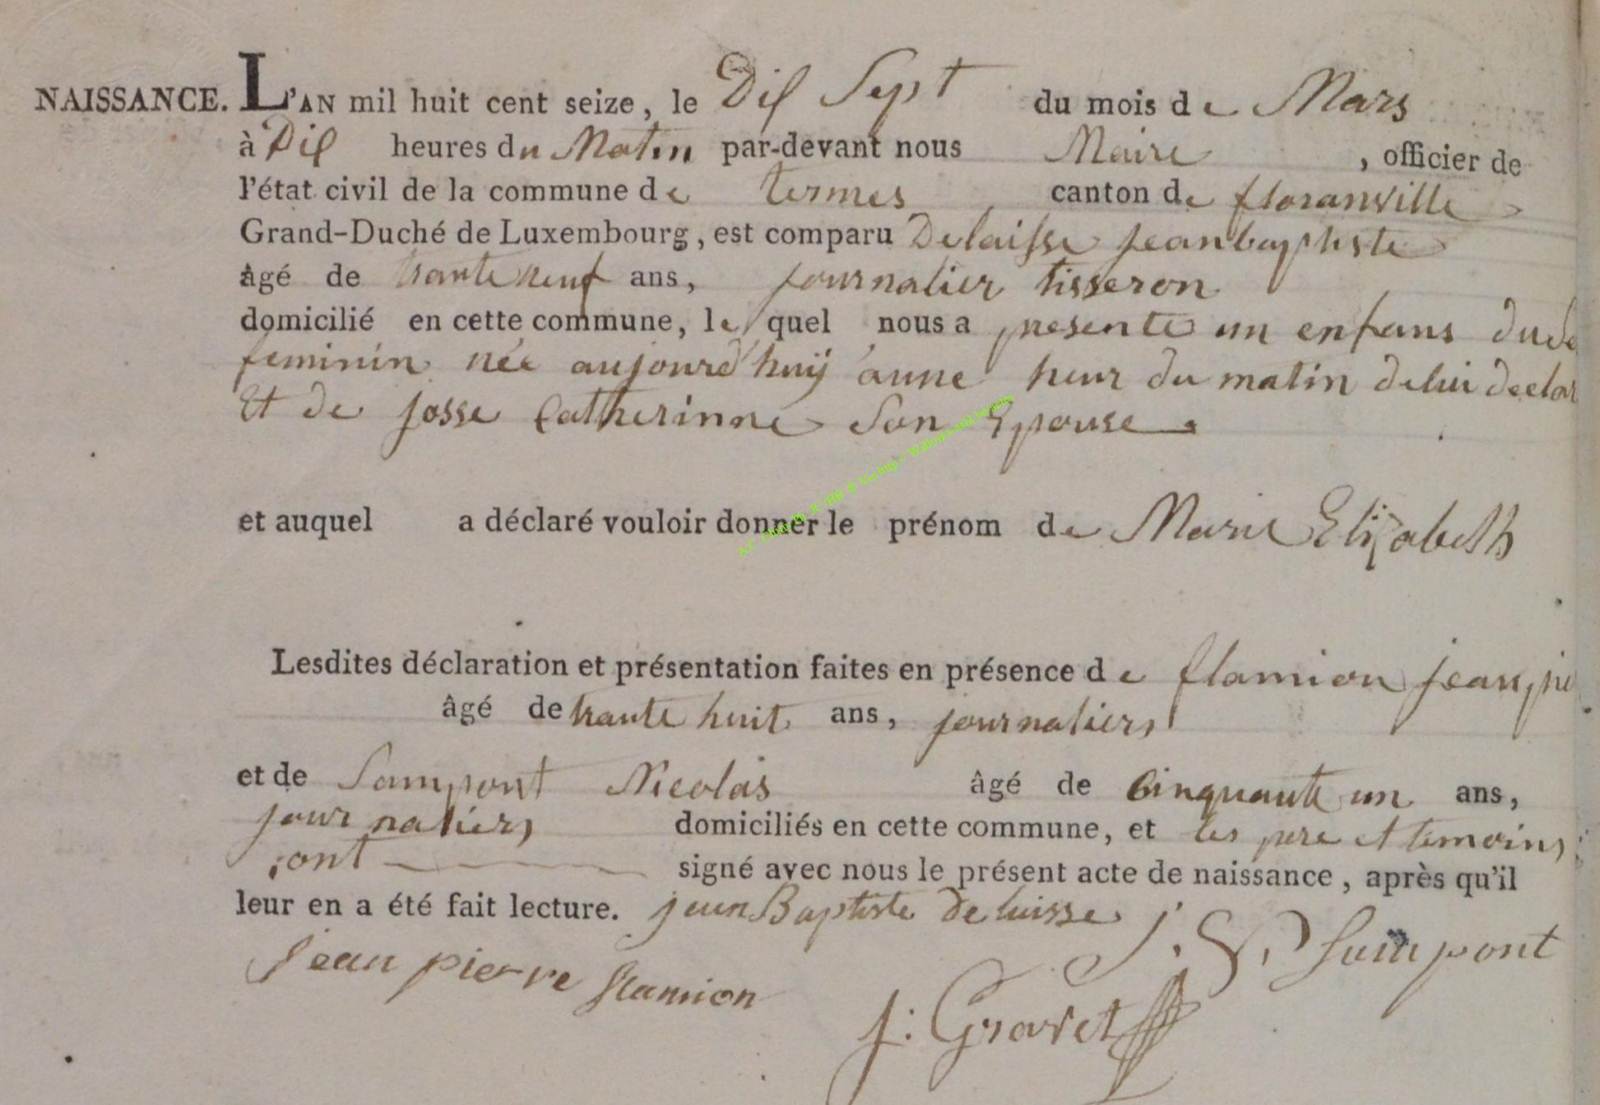 NAISSANCE. L'AN mil huit cent seize, le Dix Sept du mois de Mars
à Dix heures du Matin par-devant nous Maire, officier de
l'état civil de la commune de termes canton de floranville
Grand-Duché de Luxembourg, est comparu Delaisse jeanbaptiste
âgé de trante neuf ans, journalier tisseron
domicilié en cette commune, le quel nous a presente un enfans du Se
feminin née aujourd'huij a une heur du matin de lui declar
Et de josse Catherinne Son Epouse
et auquel a déclaré vouloir donner le prénom de Marie Elizabeth
Lesdites déclaration et présentation faites en présence de flamion jean pi
âgé de trante huit ans, journaliers
et de Sampont Nicolas âgé de Cinquante un ans,
journaliers domiciliés en cette commune, et les pere et temoins
ont signé avec nous le présent acte de naissance, après qu'il
leur en a été fait lecture. jean Baptiste Delaisse
Sampont
jean pierre flamion
j: Gravet